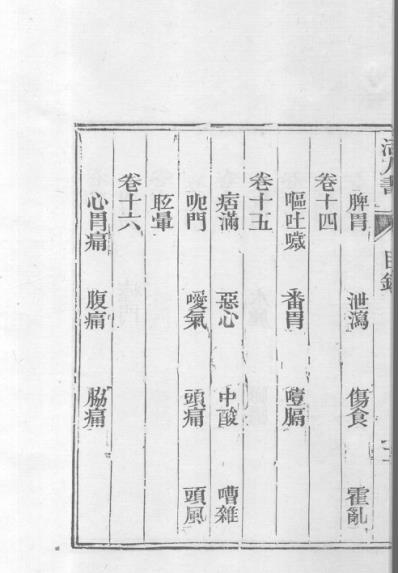 活人書 目錄
脾胃 泄瀉 傷食 霍亂
卷十四
嘔吐噦 番胃 噎膈
卷十五
痞滿 惡心 中酸 嘈雜
咉門 噯氣 頭痛 頭風
眩暈
卷十六
心胃痛 腹痛 脇痛